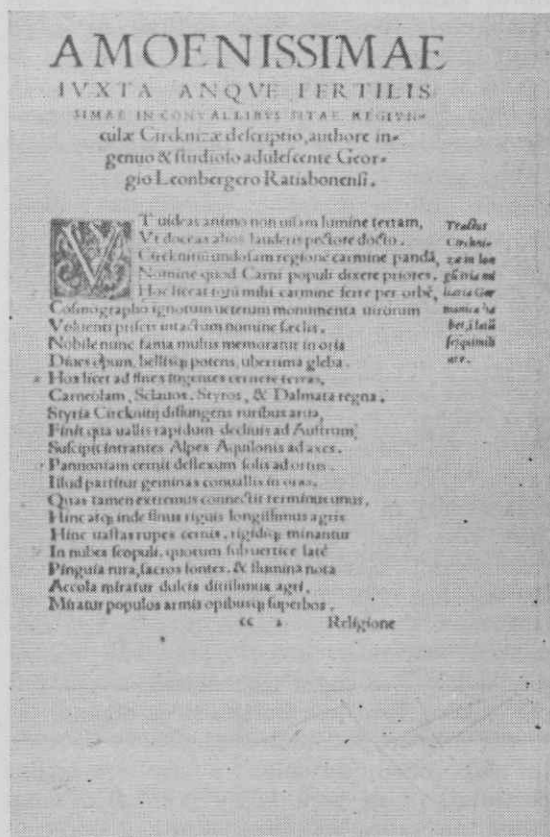 AMOENISSIMAE
IVXTA ANQVE FERTILIS
SIMAE IN CONVALLIBVS SITAE REGIVN-
culæ Circknizæ descriptio, authore in-
genuo & studioso adulescente Geor-
gio Leonbergero Ratisbonensi.
VT uideas animo non uisam lumine terram,
Vt doceas alios laudetis pectore docto.
Circknitij undosam regione carmine pandā,
Nomine quod Carni populi dixere priores.
Hoc liceat mihi carmine ferre per orbē,
Cosmographo ignotum ueterum monumenta uirorum
Voluenti prisci intactum nomine secli.
Nobile nunc fama multis memoratur in oris
Diues opum, bellisq; potens, uberrima gleba.
Hox licet ad fines ingentes cernere terras,
Carneolam, Sclauos, Styros, & Dalmata regna.
Styria Circknitij distungens ruribus arua,
Finit qua uallis rapidum decliuis ad Austrum,
Suscipit intrantes Alpes Aquilonis ad axes.
Pannoniam cernit deflexum solis ad ortus.
Illud partitur geminas conuallis in oras.
Quas tamen extremus connectit terminus unus.
Hinc atq; inde sinus riguis longissimus agris
Hinc uastas rupes cernis, rigidiq; minantur
In nubes scopuli, quorum sub uertice latè
Pinguia rura, sacros fontes, & flumina nota
Accola miratur dulcis ditissimus agri,
Miratur populos armis opibusq; superbos.
cc 2 Religione
Tractus
Circkni-